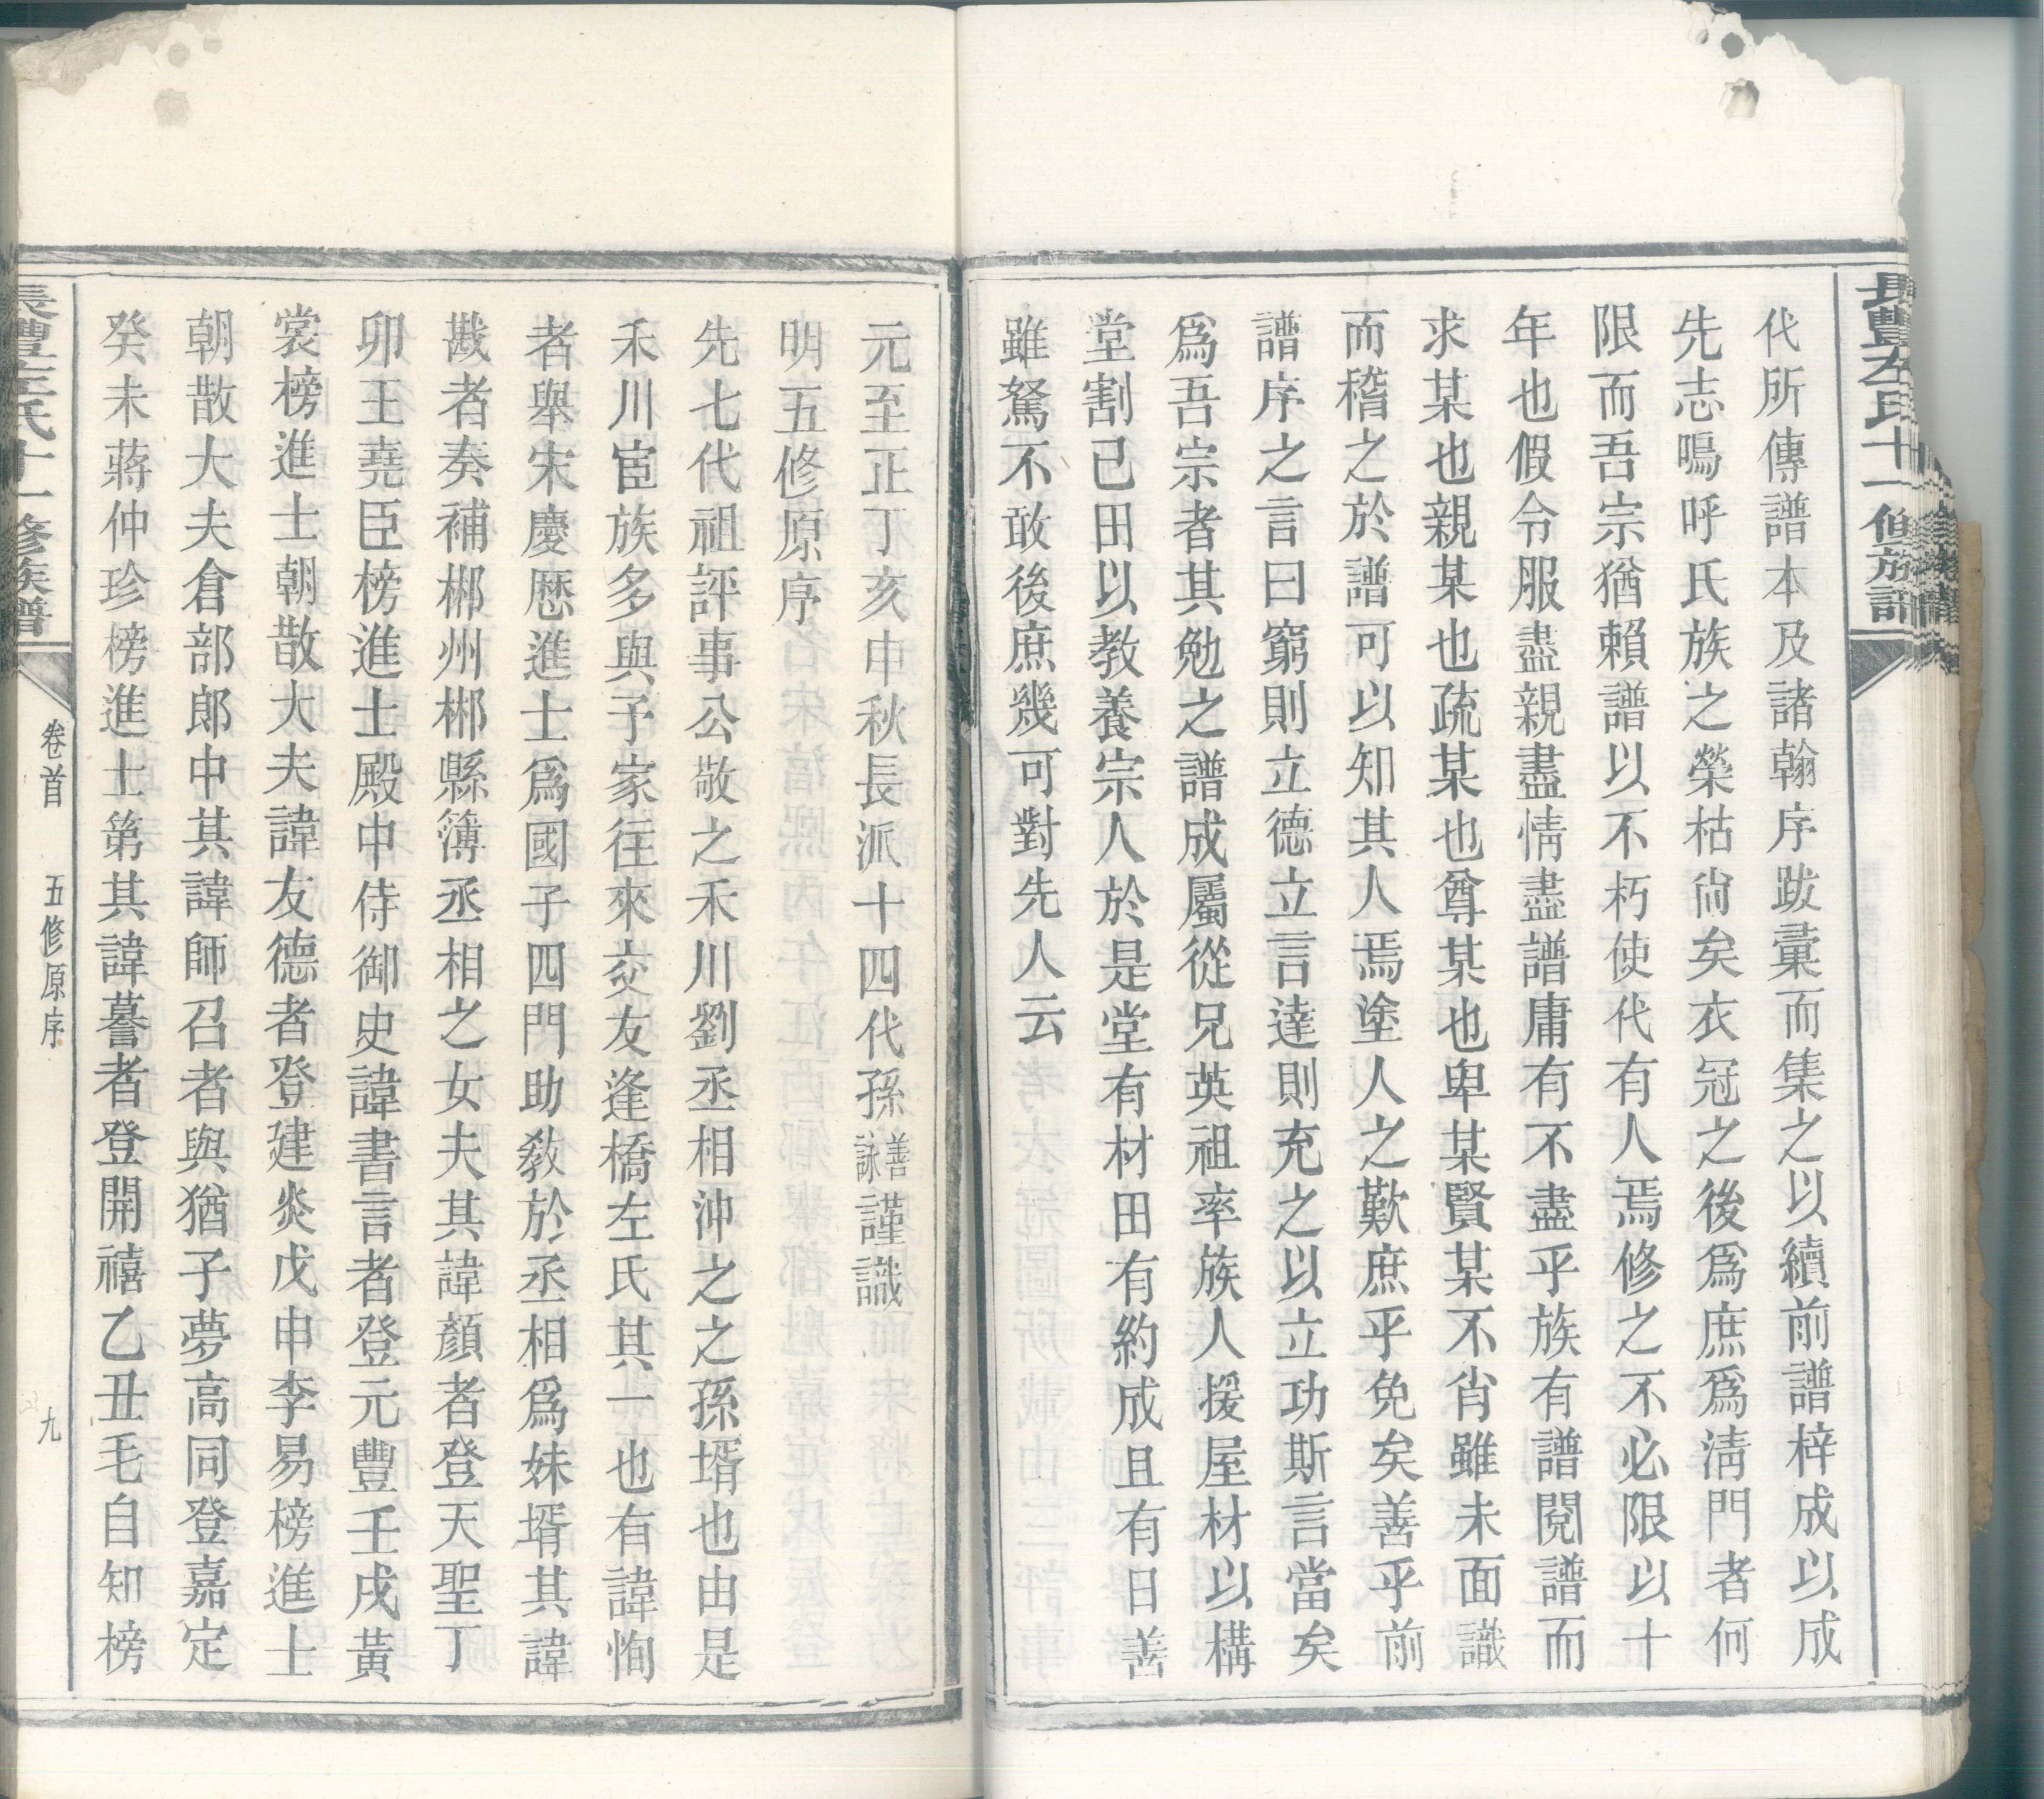 長豐左氏十一修族譜
代所傳譜本及諸翰序跋彙而集之以續前譜梓成以成
先志嗚呼氏族之榮枯尙矣衣冠之後爲庶爲淸門者何
限而吾宗猶賴譜以不朽使代有人焉修之不必限以十
年也假令服盡親盡情盡譜庸有不盡乎族有譜閱譜而
求某也親某也疏某也尊某也卑某賢某不肖雖未面識
而稽之於譜可以知其人焉塗人之歎庶乎免矣善乎前
譜序之言曰窮則立德立言達則充之以立功斯言當矣
爲吾宗者其勉之譜成屬從兄英祖率族人援屋材以構
堂割已田以敎養宗人於是堂有材田有約成且有日善
雖駑不敢後庶幾可對先人云
元至正丁亥中秋長派十四代孫善詠謹識
明五修原序
先七代祖評事公敬之禾川劉丞相沖之之孫壻也由是
禾川宦族多與予家往來交友逢橋左氏其一也有諱恂
者舉宋慶曆進士爲國子四門助敎於丞相爲妹壻其諱
戩者奏補郴州郴縣簿丞相之女夫其諱顏者登天聖丁
卯王堯臣榜進士殿中侍御史諱書言者登元豐壬戌黃
裳榜進士朝散大夫諱友德者登建炎戊申李易榜進士
朝散大夫倉部郎中其諱師召者與猶子夢高同登嘉定
癸未蔣仲珍榜進士第其諱謩者登開禧乙丑毛自知榜
長豐左氏十一修族譜
卷首
五修原序
九